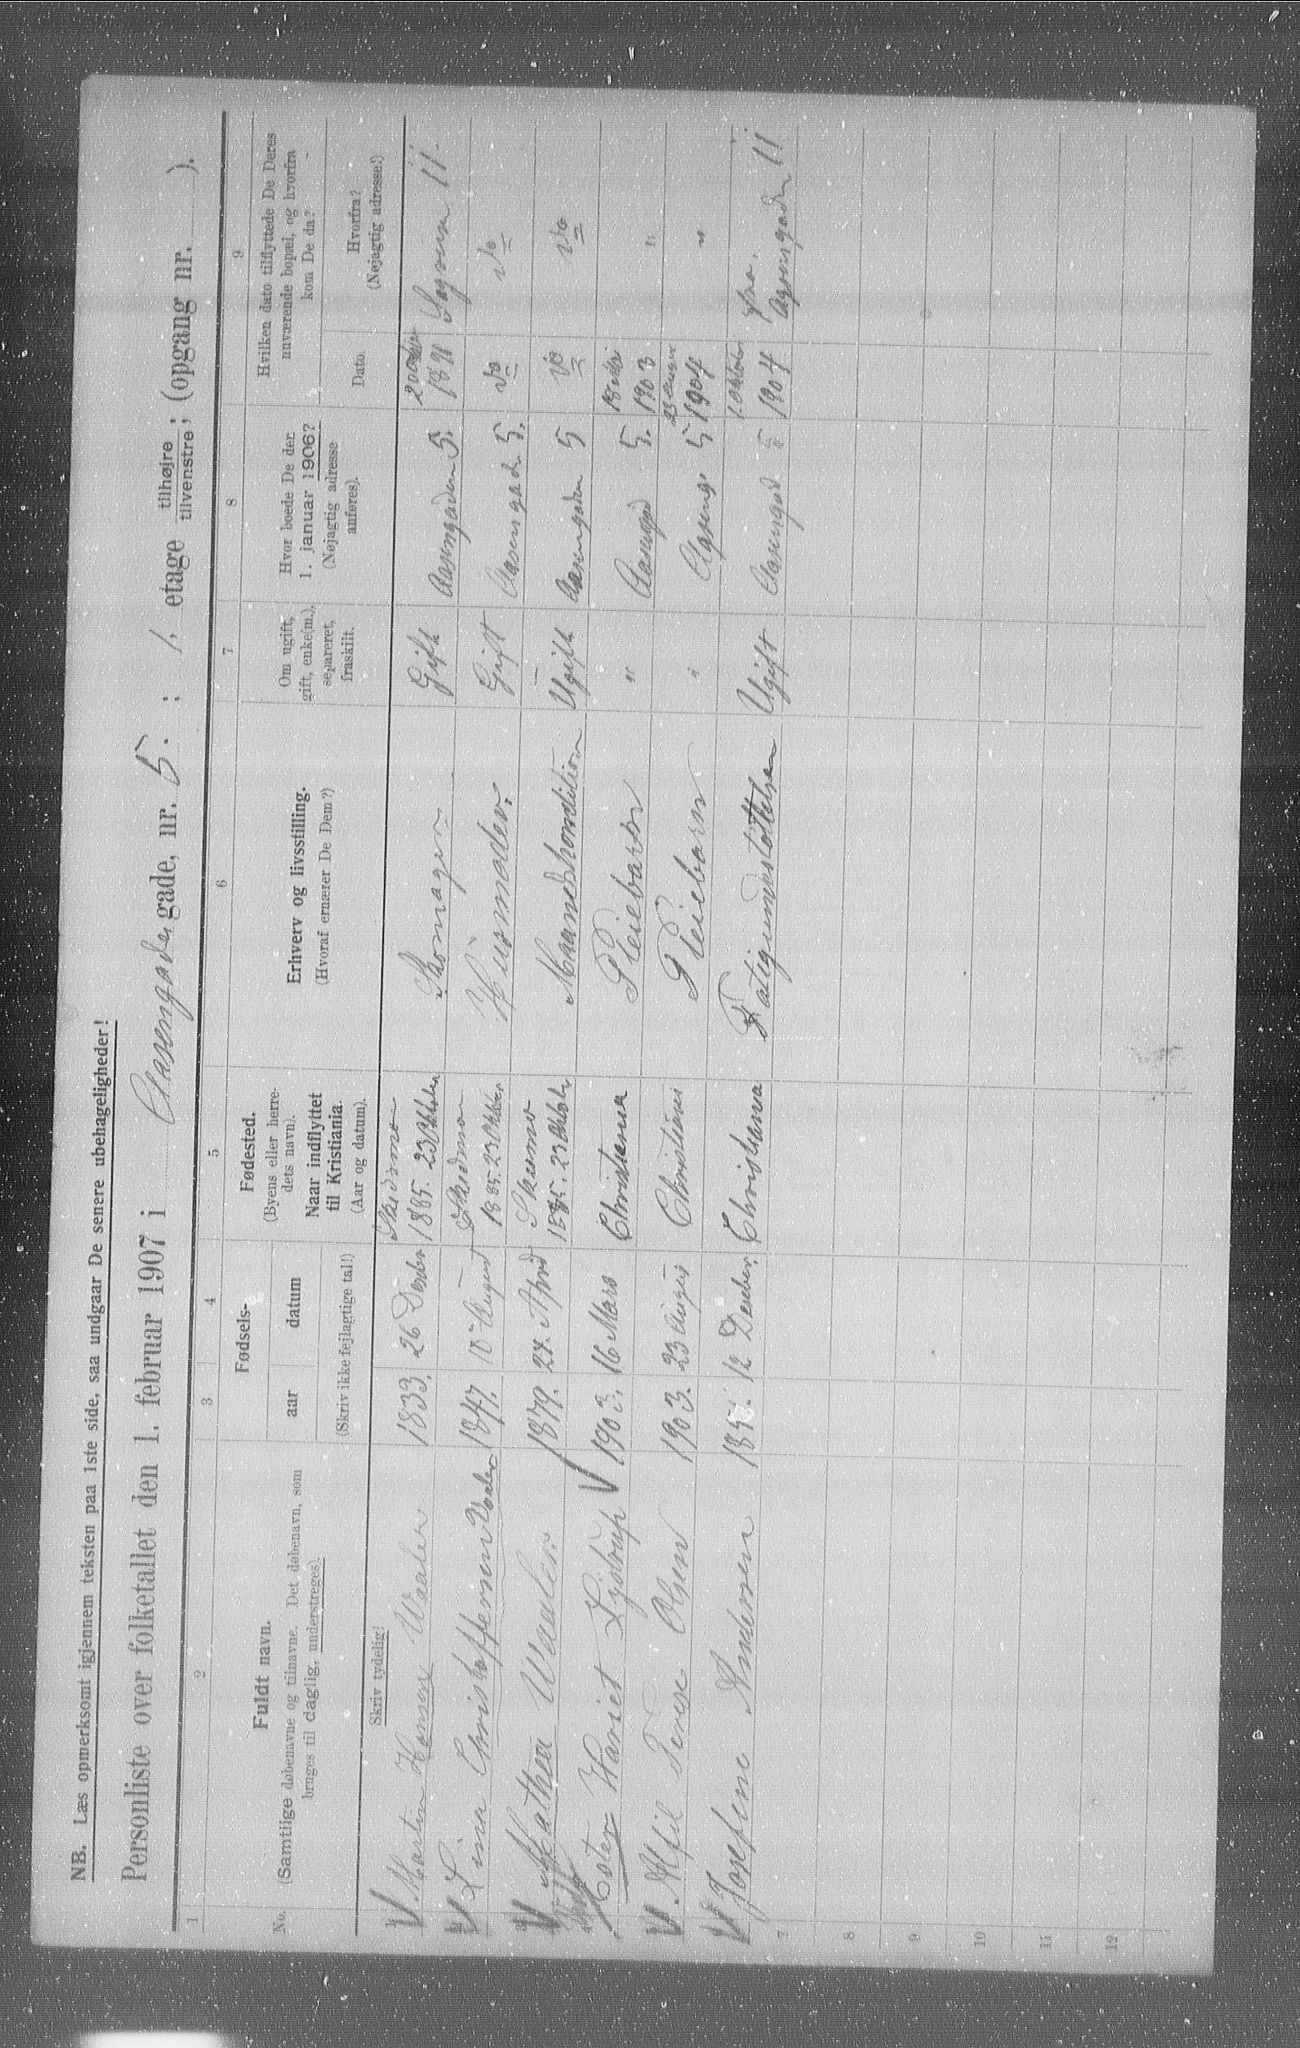 NB. Læs opmerksomt igjennem teksten paa 1ste side, saa undgaar De senere ubehageligheder!
Personliste over folketallet den 1. februar 1907 i Aasengadengade, nr. 5. ; 1. etage tilhøjre tilvenstre; (opgang nr. ).
1 2 3 4 5 6 7 8 9
No.
Fuldt navn.
(Samtlige døbenavne og tilnavne. Det døbenavn, som
bruges til daglig, understreges).
Skriv tydelig!
Fødsels-
aar datum
(Skriv ikke fejlagtige tal!)
Fødested.
(Byens eller herre-
dets navn).
Naar indflyttet
til Kristiania.
(Aar og datum).
Erhverv og livsstilling.
(Hvoraf ernærer De Dem?)
Om ugift,
gift, enke(m.),
separeret,
fraskilt.
Hvor boede De den
1. januar 1906?
(Nøjagtig adresse
anføres).
Hvilken dato tilflyttede De Deres
nuværende bopæl, og hvorfra
kom De da?
Dato.
Hvorfra?
(Nøjagtig adresse!)
Martin Hansen Waaler 1833. 26 Desbr 1885. 23 Oktober Skomager Gift Aasengaden 5. 1898 11
Lina Christoffersen Waaler 1847. 10 August 1885. 23 Oktober Husmoder. Gift Aasengaden 5. do do
Mathea Waaler. 1879. 24. April 1885. 23 Oktober Ugift Aasengaden 5 do do
Ester Hariet 1903. 16 Mars Christiania Pleiebarn " Aasengad 5. 1903 "
Alfil Terese Olsen 1903. 23 August Christiania Pleiebarn " Aaseng. 5 1904 "
Josefine Andersen 12 Deseber. Christiania Fatigunderstøttelsen Ugift Aasengad 5 1. Oktober 1904 fra. Aasengaden 11
7
8
9
10
11
12